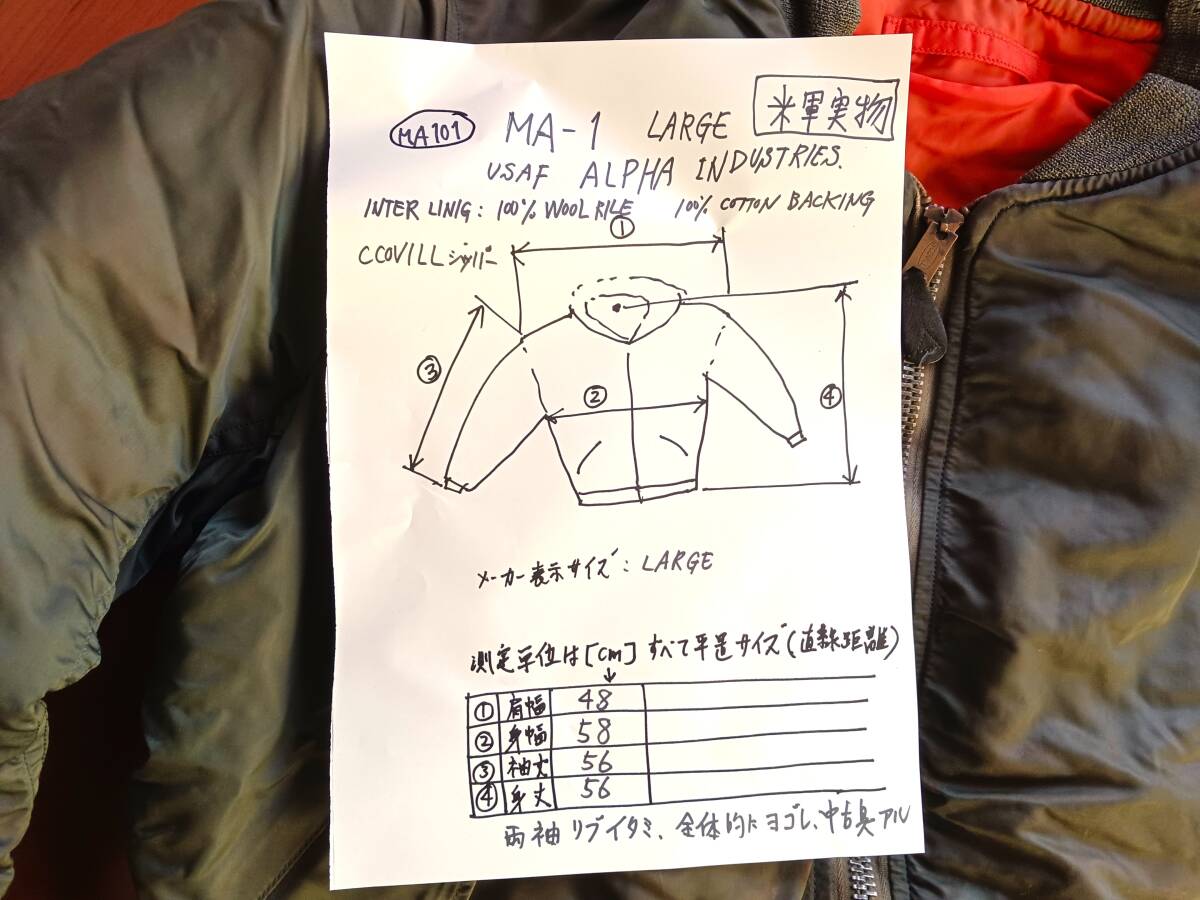 MA101 MA-1 LARGE 米軍実物
USAF ALPHA INDUSTRIES.
INTER LINIG: 100% WOOL RILE 100% COTTON BACKING
CCOVILL ジッパー
①
②
③
④
メーカー表示サイズ: LARGE
測定単位は[cm] すべて平置サイズ(直線距離)
① 肩幅 48
② 身幅 58
③ 袖丈 56
④ 身丈 56
両袖リブイタミ、全体的にヨゴレ、中古臭アル